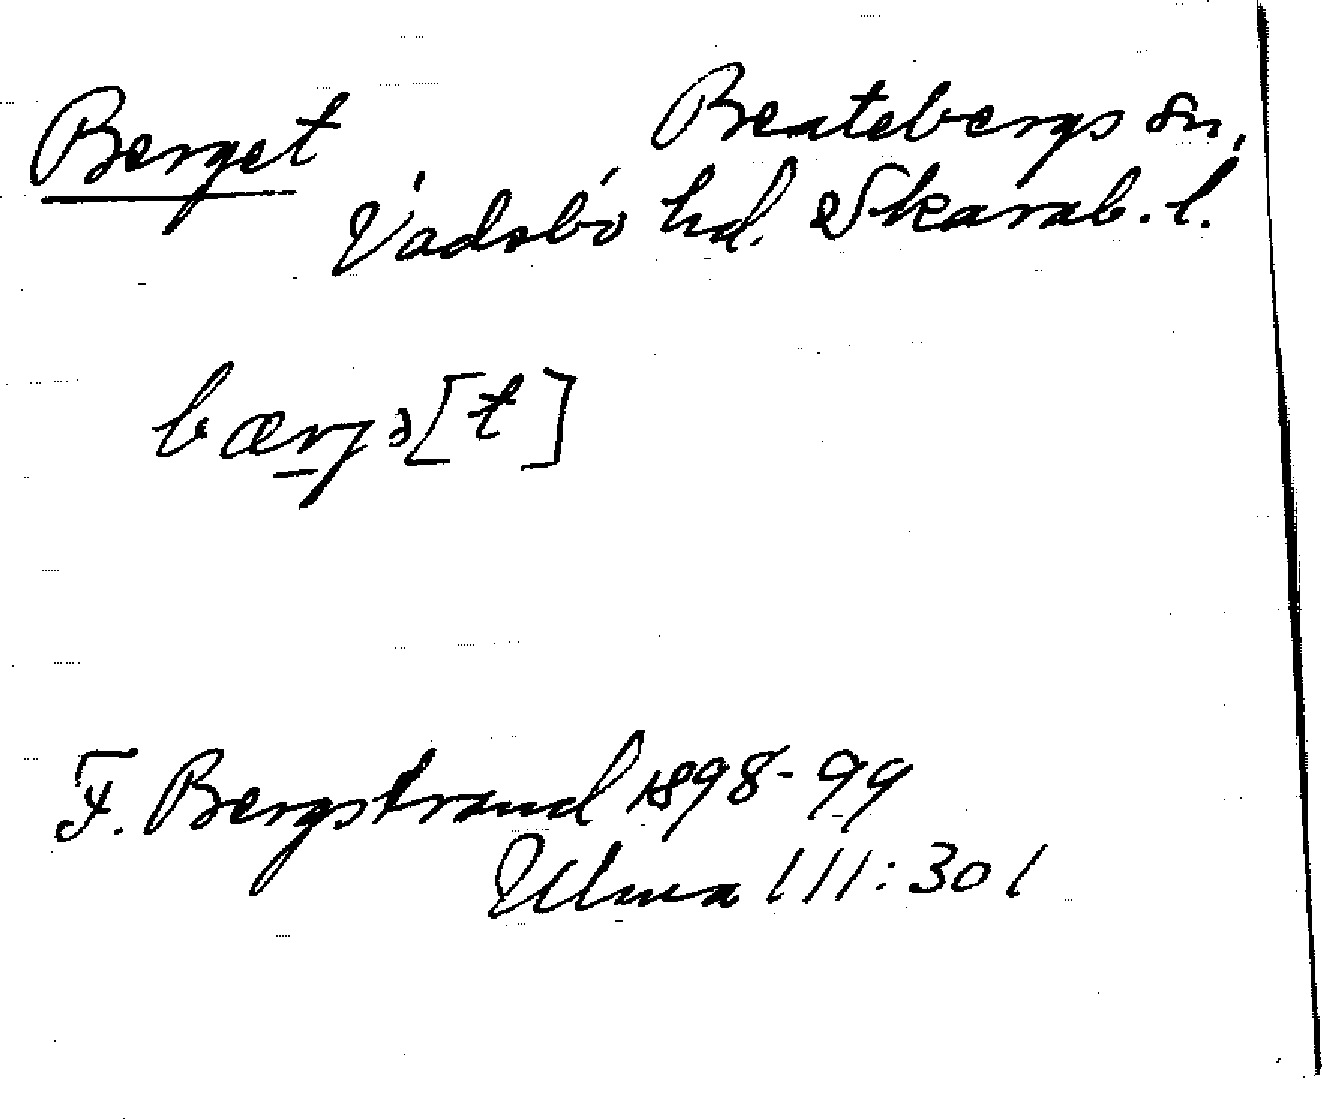 Berget Beatebergs sn,
Vadsbo hd. Skarab. l.
bærjə[t]
F. Bergstrand 1898-99
Ulma 111:301